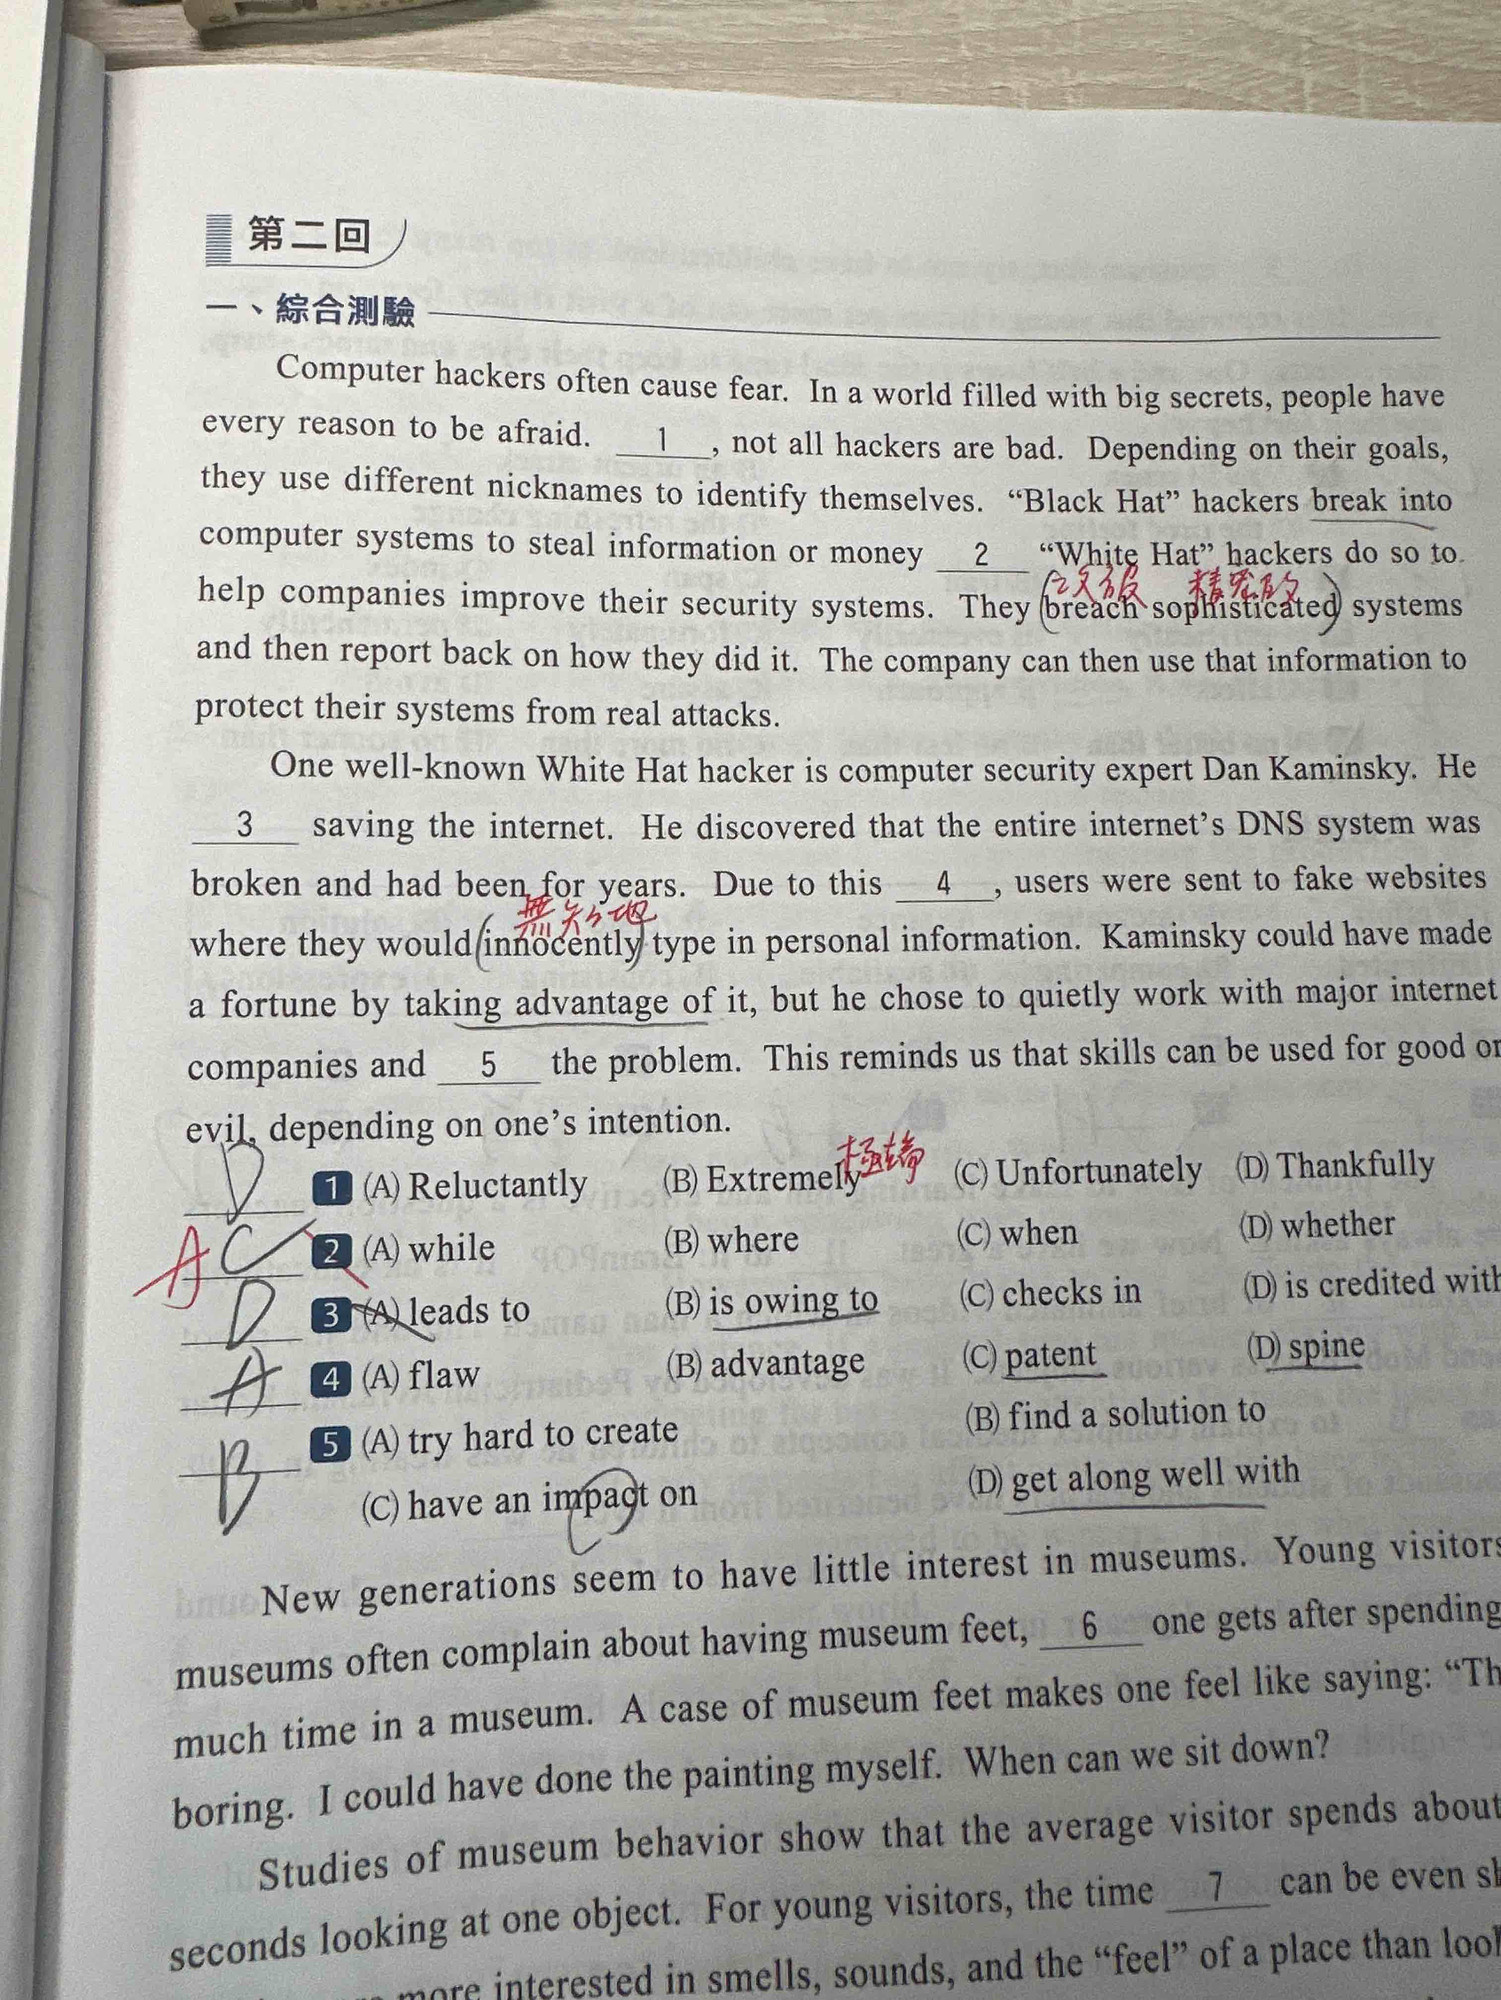 第二回
一、綜合測驗
Computer hackers often cause fear. In a world filled with big secrets, people have
every reason to be afraid. 1 , not all hackers are bad. Depending on their goals,
they use different nicknames to identify themselves. “Black Hat” hackers break into
computer systems to steal information or money 2 “White Hat” hackers do so to
攻破 精密的
help companies improve their security systems. They breach sophisticated systems
and then report back on how they did it. The company can then use that information to
protect their systems from real attacks.
One well-known White Hat hacker is computer security expert Dan Kaminsky. He
3 saving the internet. He discovered that the entire internet’s DNS system was
broken and had been for years. Due to this 4 , users were sent to fake websites
無知地
where they would innocently type in personal information. Kaminsky could have made
a fortune by taking advantage of it, but he chose to quietly work with major internet
companies and 5 the problem. This reminds us that skills can be used for good or
evil, depending on one’s intention.
極端
D 1 (A) Reluctantly (B) Extremely (C) Unfortunately (D) Thankfully
A C 2 (A) while (B) where (C) when (D) whether
D 3 (A) leads to (B) is owing to (C) checks in (D) is credited with
A 4 (A) flaw (B) advantage (C) patent (D) spine
B 5 (A) try hard to create (B) find a solution to
(C) have an impact on (D) get along well with
New generations seem to have little interest in museums. Young visitors
museums often complain about having museum feet, 6 one gets after spending
much time in a museum. A case of museum feet makes one feel like saying: “Th
boring. I could have done the painting myself. When can we sit down?
Studies of museum behavior show that the average visitor spends about
seconds looking at one object. For young visitors, the time 7 can be even sh
more interested in smells, sounds, and the “feel” of a place than look